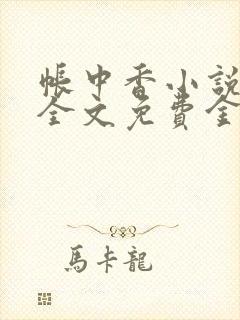 帳中香小說
全文免費全
馬卡龍